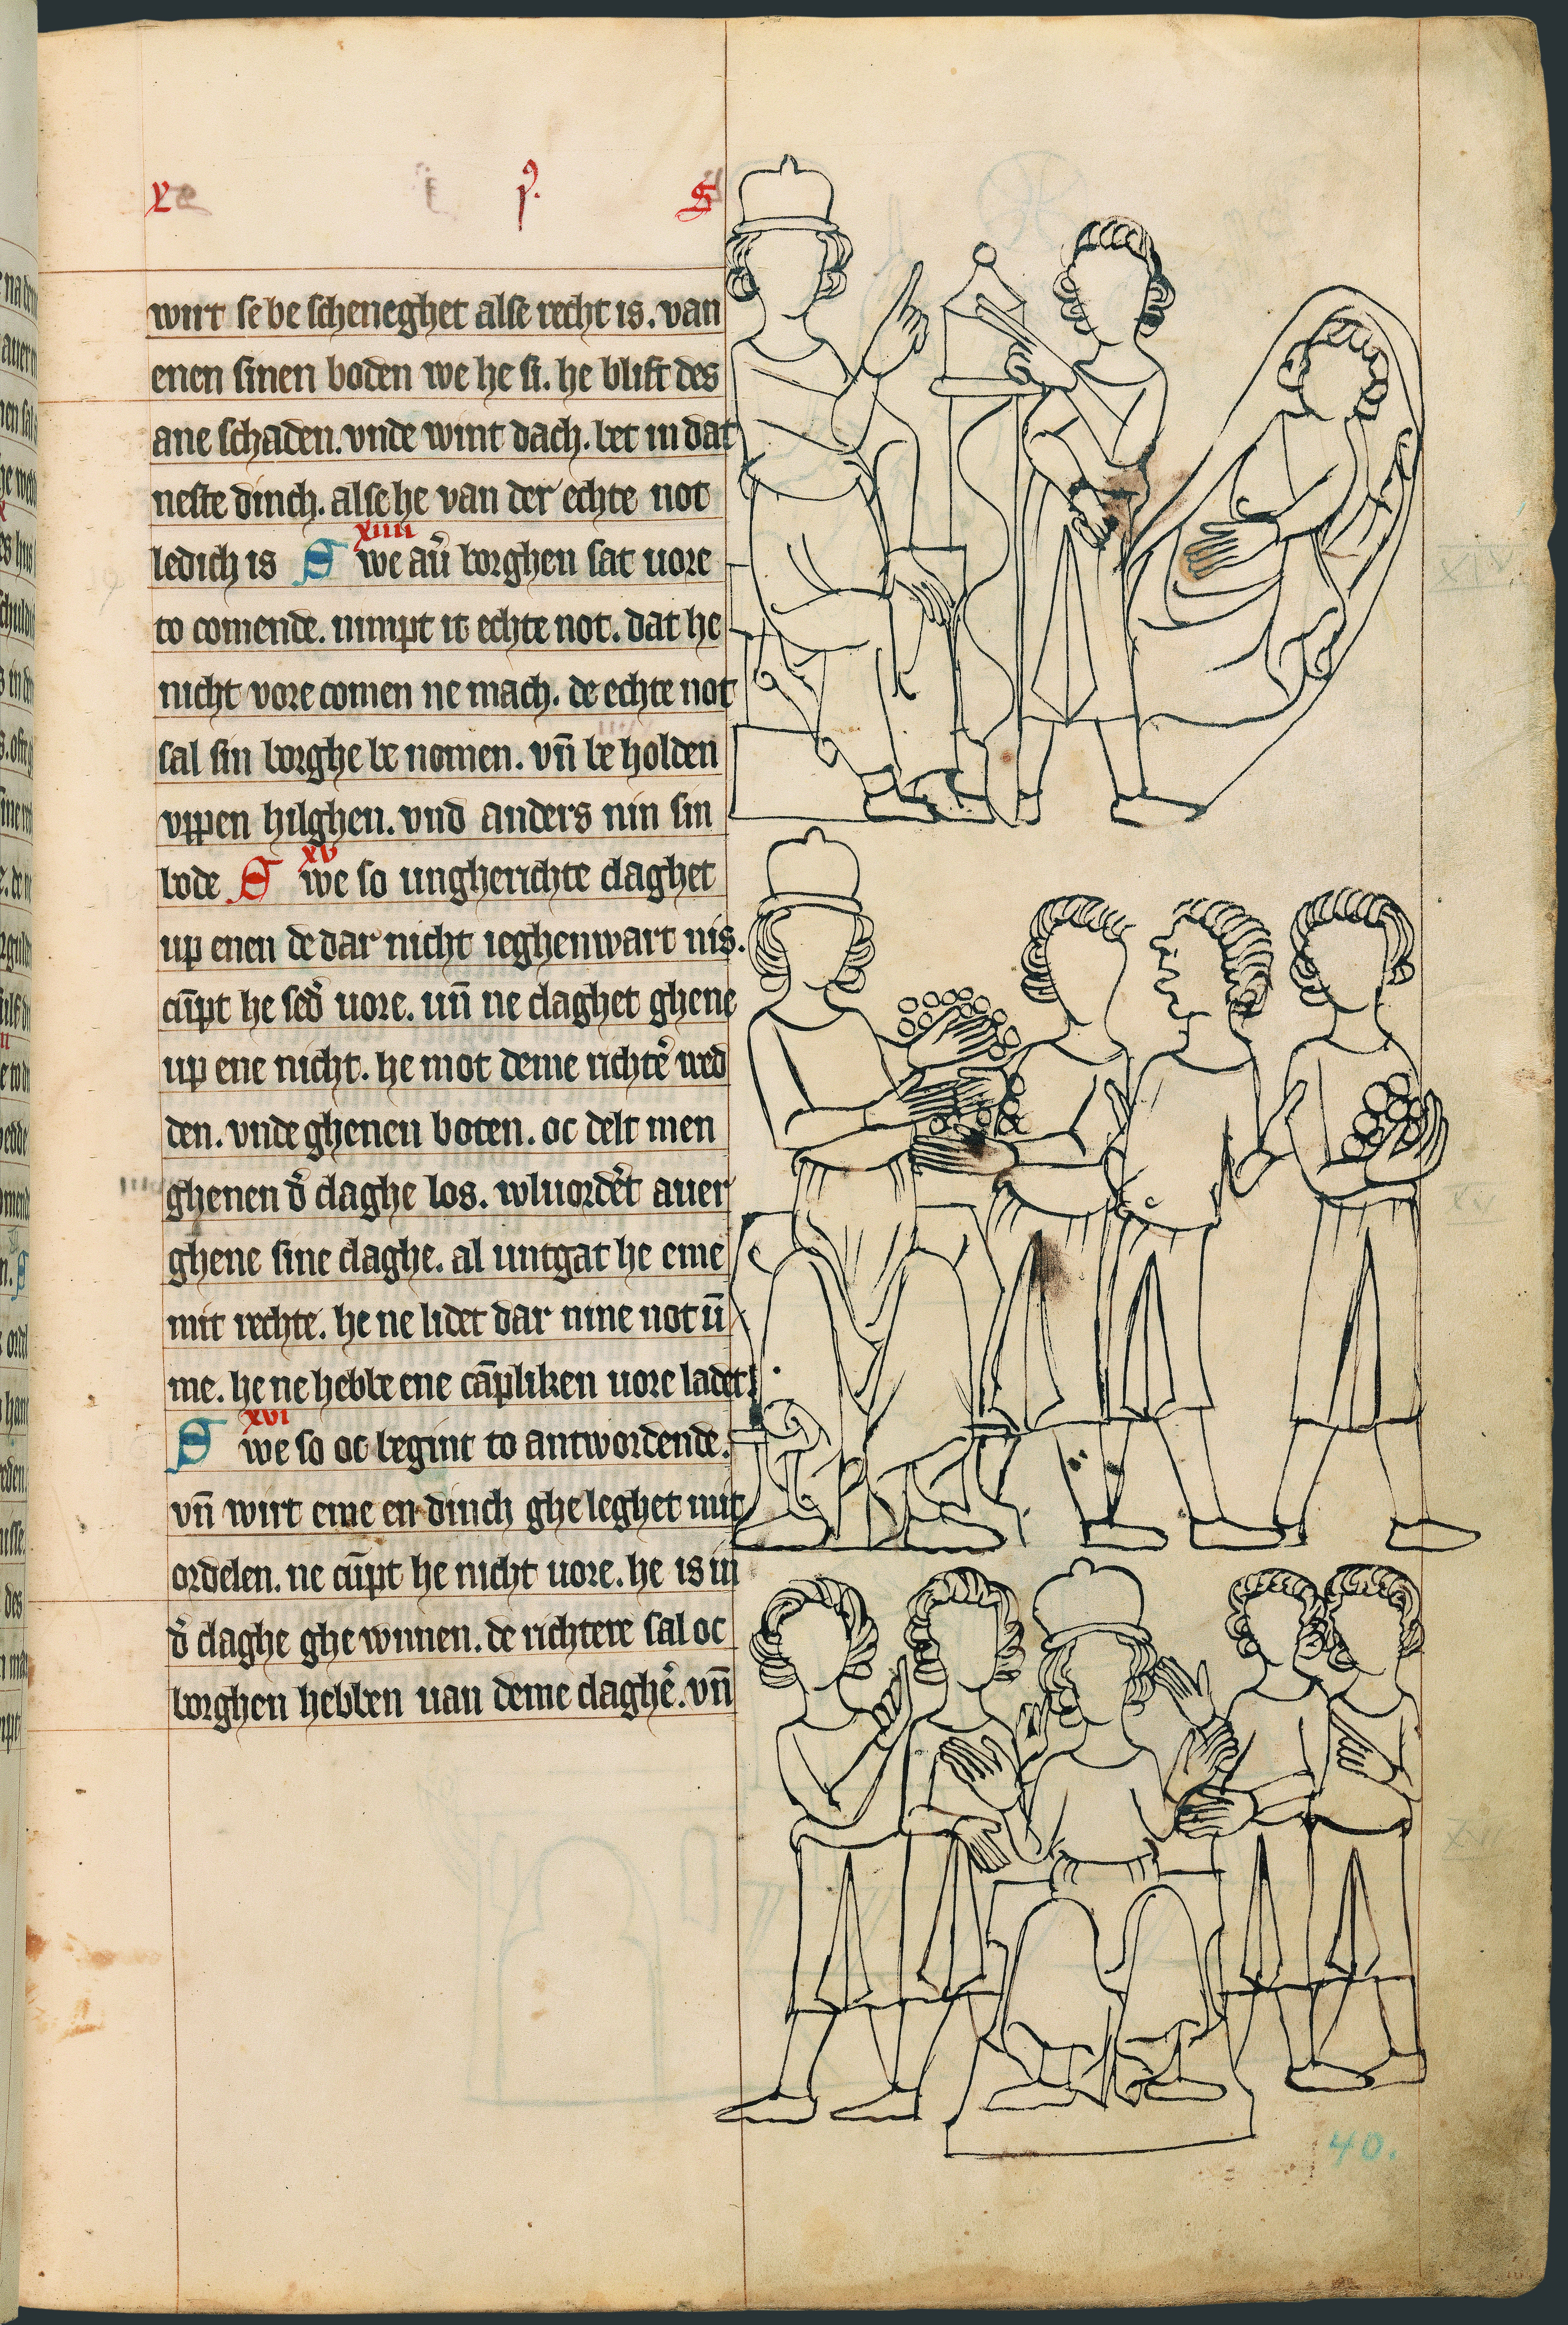 wirt se be scheneghet alse recht is. van
enen sinen boden we he si. he blift des
ane schaden. vnde wint dach. bet in dat
neste dinch. alse he van der echte not
xiiii
ledich is S we au͛ borghen sat uore
to comende. nimpt it echte not. dat he
nicht vore comen ne mach. de echte not
sal sin borghe be nomen. vn̄ be holden
vppen hilghen. vnd anders nin sin
xv
bode S we so ungherichte claghet
up enen de dar nicht ieghenwart nis.
cūpt he sed͛ uore. un̄ ne claghet ghene
up ene nicht. he mot deme richte͛ wed
den. vnde ghenen boten. oc delt men
ghenen d͛ claghe los. wluorde͛t auer
ghene sine claghe. al untgat he eme
mit rechte. he ne lidet dar nine not ū
me. he ne hebbe ene cāpliken uore ladet
xvi
S we so oc begint to antwordende.
vn̄ wirt eme en dinch ghe leghet mit
ordelen. ne cūpt he nicht uore. he is in
d͛ claghe ghe wnnen. de richtere sal oc
borghen hebben uan deme claghe͛. vn̄
XIV
XV
XVI
40.